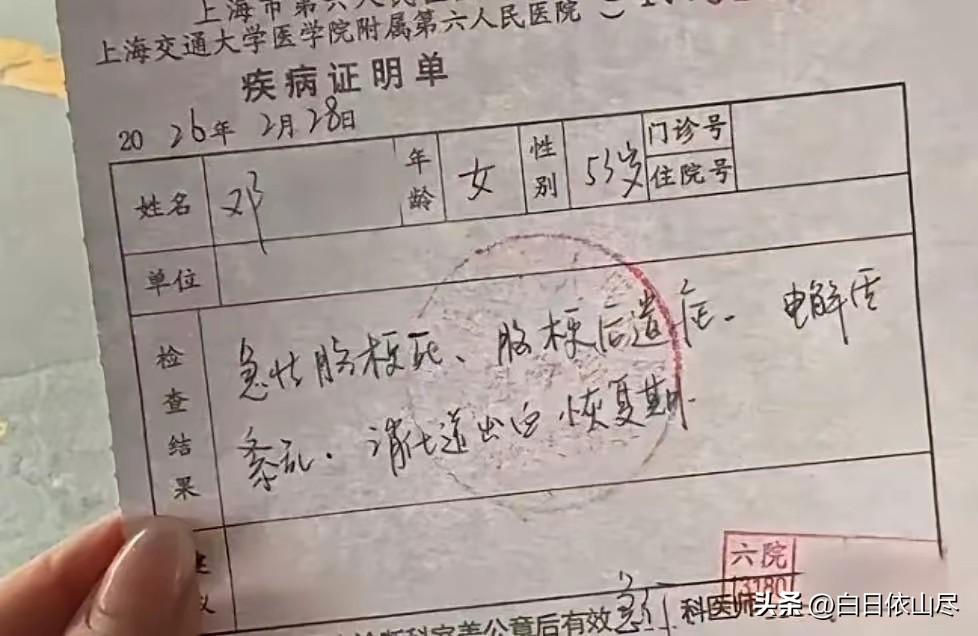 上海市第六人民医
上海交通大学医学院附属第六人民医院
疾病证明单
2026年2月28日
姓名 邓 年龄 女 性别 53岁 门诊号
住院号
单位
检查结果 急性脑梗死、脑梗后遗症. 电解质
紊乱. 消化道出血 恢复期.
六院
科医师
章后有效 急
头条 @白日依山尽